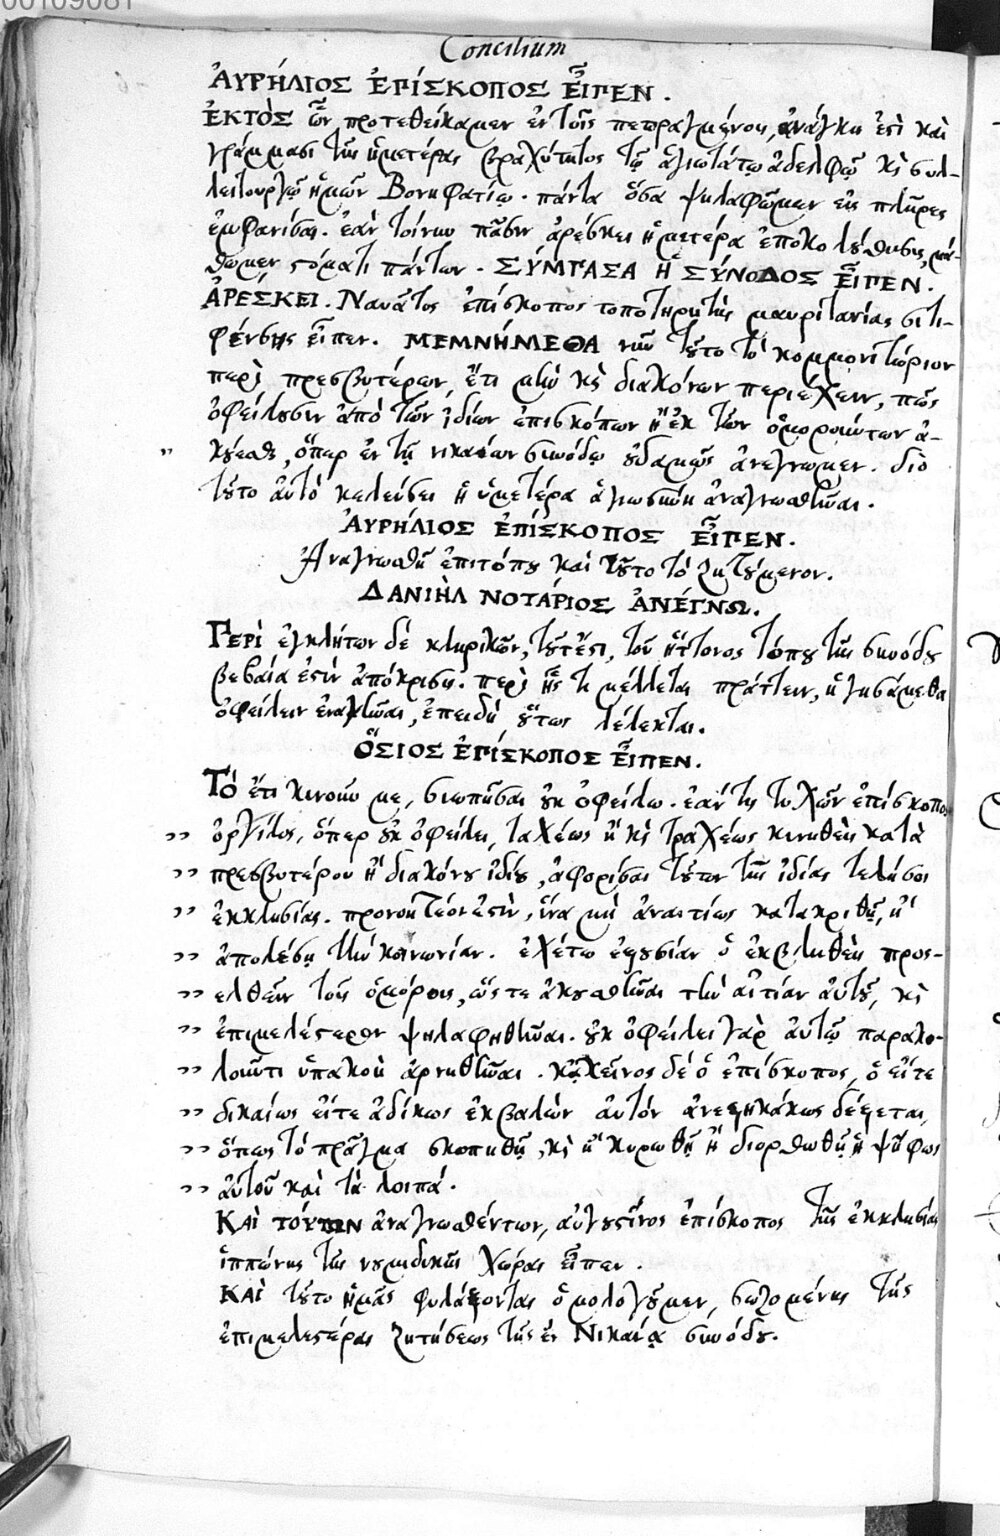 00109081
Concilium
ἈΥΡΉΛΙΟΣ ἘΠΊΣΚΟΠΟΣ ΕἾΠΕΝ.
ἘΚΤῸΣ ὧν προτεθείκαμεν ἐν τοῖς πεπραγμένοις, ἀνάγκη ἐςὶ καὶ
γράμμασι τῆς ἡμετέρας βραχύτητος τῷ ἁγιωτάτῳ ἀδελφῷ κὶ συλ-
λειτουργῷ ἡμῶν Βονηφατίῳ. πάντα ὅσα ψηλαφῶμεν εἰς πλῆρες
ἐμφανίσαι. ἐὰν τοίνυν πᾶσιν ἀρέσκει ἡ ἡμετέρα ἐπακολούθησις, μά-
θωμεν ςόματι πάντων. ΣΎΜΠΑΣΑ Ἡ ΣΎΝΟΔΟΣ ΕἾΠΕΝ.
ἈΡΈΣΚΕΙ. Ναυᾶτος ἐπίσκοπος τοποτηρητὴς μαυριτανίας σιτι-
φένσης εἶπεν. ΜΕΜΝΉΜΕΘΑ νῦν τοῦτο τὸ κομμονιτώριον
περὶ πρεσβυτέρων, ἔτι μὴν κὶ διακόνων περιέχειν, πῶς
ὀφείλουσιν ἀπὸ τῶν ἰδίων ἐπισκόπων ἢ ἐκ τῶν ὁμορούντων ἀ-
κούεσθ, ὅπερ ἐν τῇ νικαέων συνόδῳ οὐδαμῶς ἀνέγνωμεν. διὸ
τοῦτο αὐτὸ κελεύσει ἡ ὑμετέρα ἁγιωσύνη ἀναγνωσθῆναι.
ἈΥΡΉΛΙΟΣ ἘΠΊΣΚΟΠΟΣ ΕἾΠΕΝ.
Ἀναγνωσθῇ ἐπιτόπου καὶ τοῦτο τὸ ζητούμενον.
ΔΑΝΙῊΛ ΝΟΤΆΡΙΟΣ ἈΝΈΓΝΩ.
ΠΕΡῚ ἐγκλήτων δὲ κληρικῶν, τουτέςι, τοῦ ἥττονος τόπου τῆς συνόδου
βεβαία ἐςὶν ἀπόκρισις. περὶ ἧς τι μέλλεται πράττειν, ἡγησάμεθα
ὀφείλειν ἐναχθῆναι, ἐπειδὴ οὕτως λέλεκται.
ὍΣΙΟΣ ἘΠΊΣΚΟΠΟΣ ΕἾΠΕΝ.
Τό ἔτι κινοῦν με, σιωπῆσαι οὐκ ὀφείλω. ἐάν τις τυχὼν ἐπίσκοπος
ὀργίλος, ὅπερ οὐκ ὀφείλει, ταχέως ἢ κὶ τραχέως κινηθεὶς κατὰ
πρεσβυτέρου ἢ διακόνου ἰδίου, ἀφορίσαι τοῦτον τῆς ἰδίας
ἐκκλησίας. προνοητέον ἐςὶν, ἵνα μὴ ἀναιτίως κατακριθῇ, ἢ
ἀπολέσῃ τὴν κοινωνίαν. ἐχέτω ἐξουσίαν ὁ ἐκβληθεὶς προς-
ελθεῖν τοῖς ὁμόροις, ὥςτε ἀκουσθῆναι τὴν αἰτίαν αὐτοῦ, κὶ
ἐπιμελέςερον ψηλαφηθῆναι. οὐκ ὀφείλει γὰρ αὐτῷ παρακα-
λοῦντι ὑπακοὴ ἀρνηθῆναι. κἀκεῖνος δὲ ὁ ἐπίσκοπος, ὁ εἴτε
δικαίως εἴτε ἀδίκως ἐκβαλὼν αὐτόν ἀνεξικάκως δέξεται,
ὅπως τὸ πρᾶγμα σκοπηθῇ, κὶ ἢ κυρωθῇ ἢ διορθωθῇ ἡ ψῆφος
αὐτοῦ καὶ τὰ λοιπά.
ΚΑῚ ΤΟΎΤΩΝ ἀναγνωσθέντων, αὐγουςῖνος ἐπίσκοπος τῆς ἐκκλησίας
ἱππώνης τῆς νουμιδικῆς χώρας εἶπεν.
ΚΑῚ τοῦτο ἡμᾶς φυλάξοντας ὁμολογοῦμεν, σωζομένης τῆς
ἐπιμελεςέρας ζητήσεως τῆς ἐν Νικαίᾳ συνόδου.